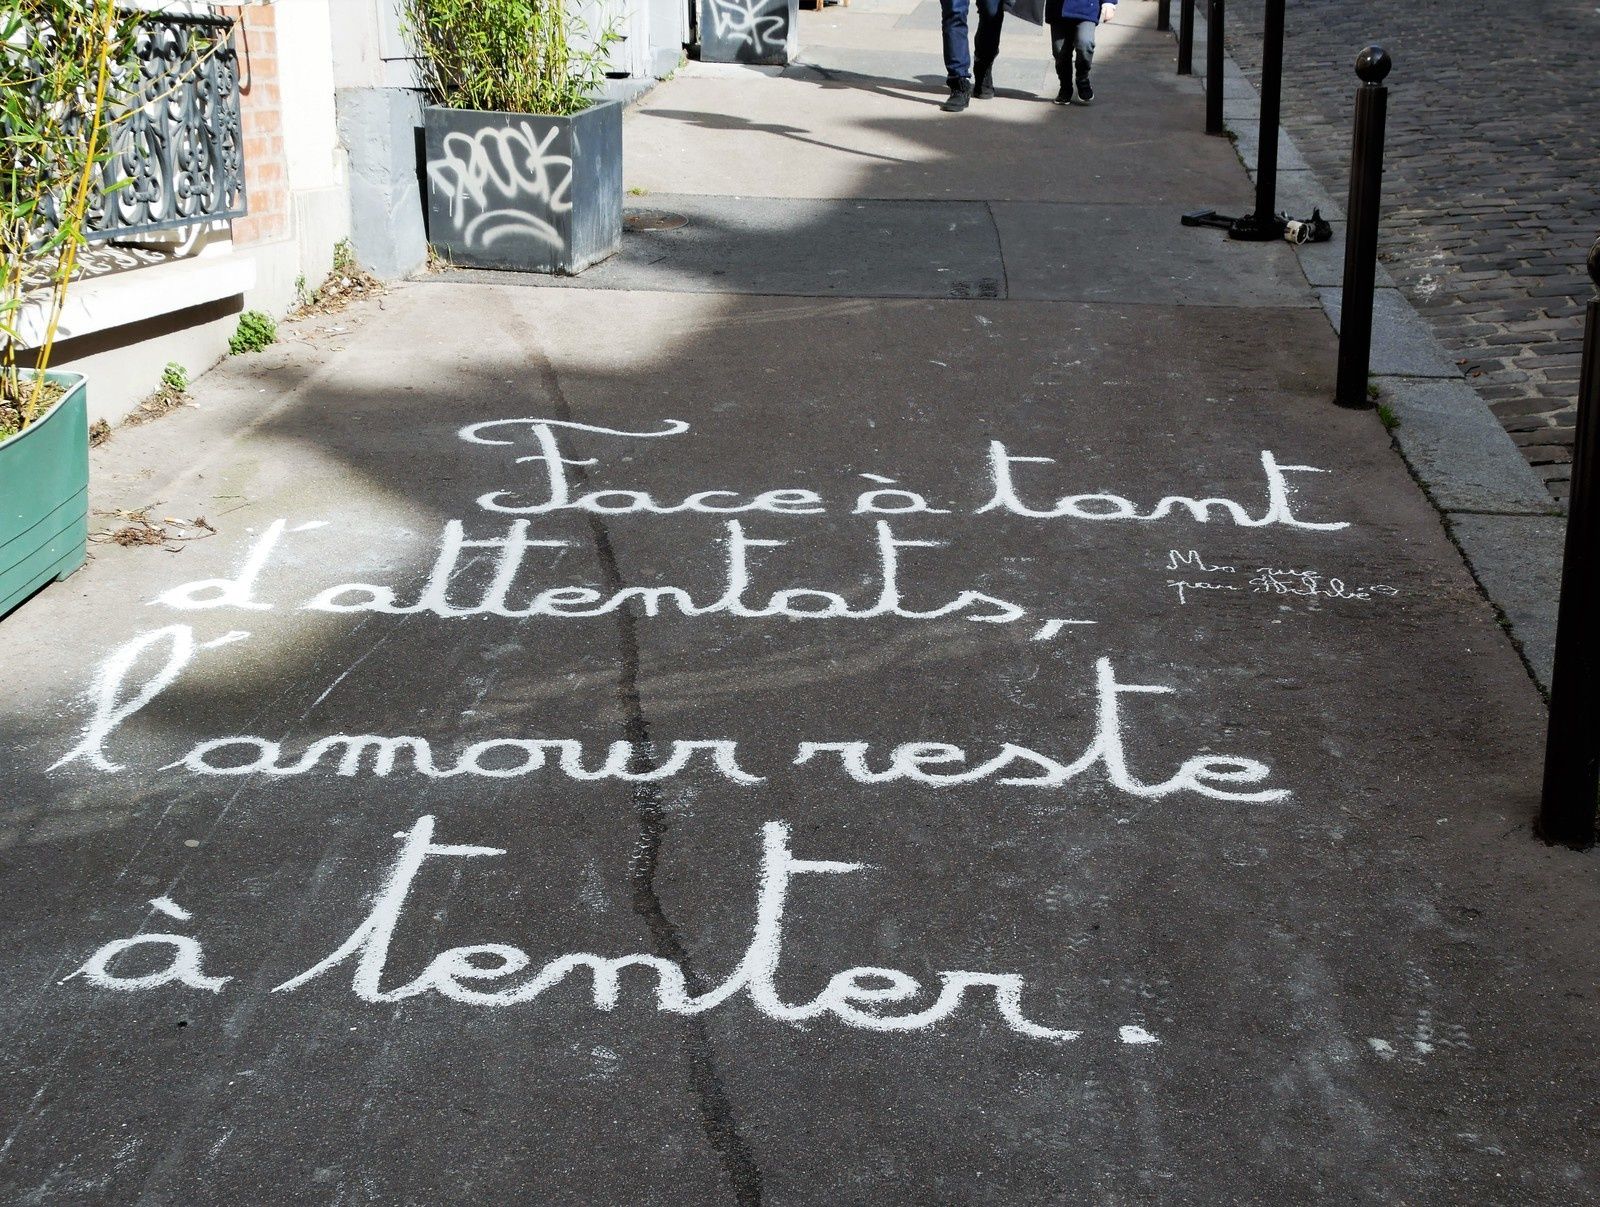 Face à tant
d'attentats,
l'amour reste
à tenter.
Ma rue
par Achbé